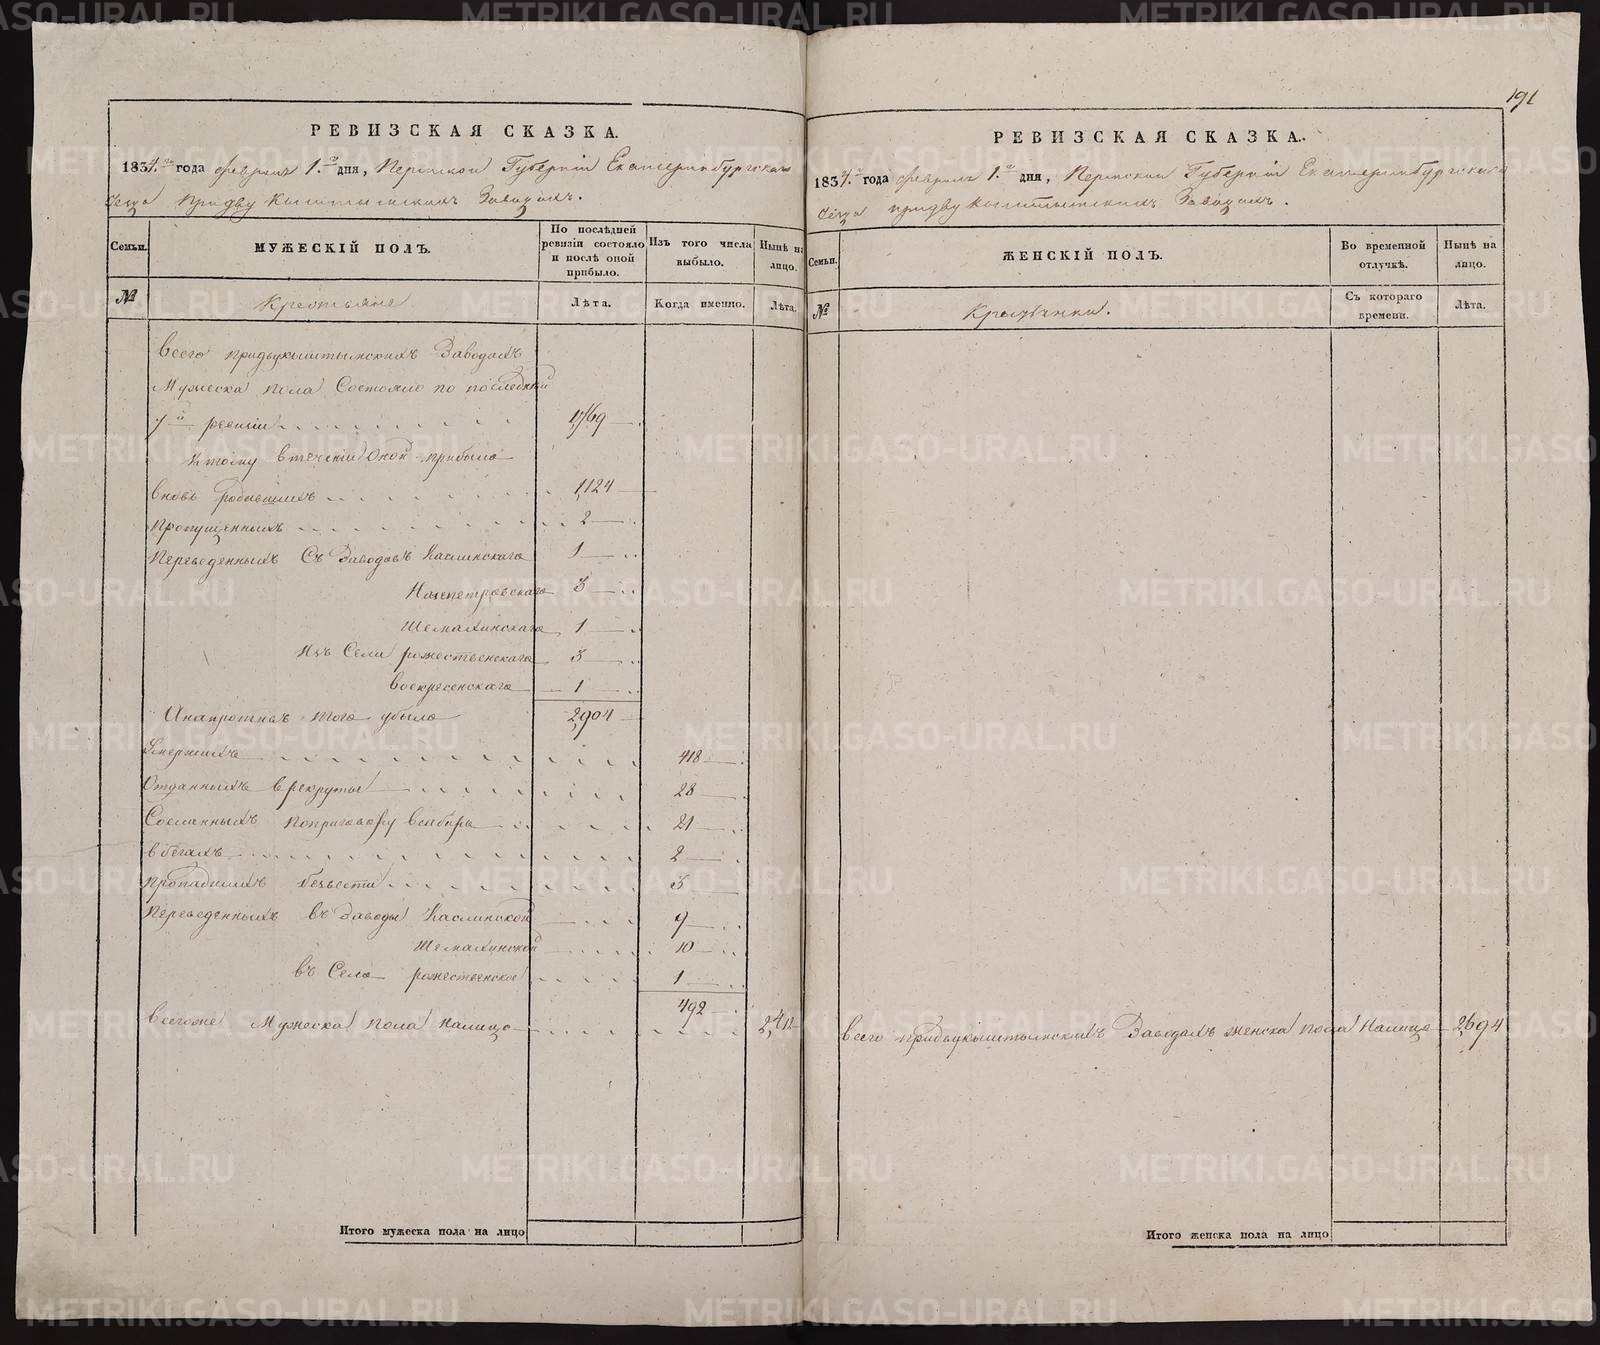 191
РЕВИЗСКАЯ СКАЗКА.
1834.го года февраля 1.го дня, Пермской Губерніи Екатеринбургскаго
уезда при двукыштымскихъ Заводахъ.
Семьи.
МУЖЕСКІЙ ПОЛЪ.
По послѣдней ревизіи состояло и послѣ оной прибыло.
Изъ того числа выбыло.
Нынѣ на лицо.
№
Крестьяне
Лѣта.
Когда именно.
Лѣта.
всего придвукыштымскихъ Заводахъ
Мужеска пола Состояло по последней
7й ревизіи 1769
Ктому втеченіи Оной прибыло
вновь родившихъ 1124
пропущенныхъ 2
Переведенныхъ Съ Заводовъ Каслинскаго 1
Нязепетровскаго 3
Шемахинскаго 1
Изъ Села рожественскаго 3
воскресенскаго 1
Анапротивъ того убыло 2904
Умершихъ 418
Отданныхъ врекруты 28
Сосланныхъ поприговору всибирь 21
вбегахъ 2
пропавшихъ безвести 3
Переведенныхъ въ Заводы Каслинской 9
Шемахинской 10
въ Село рожественское 1
492
всегоже Мужеска пола налицо 2,412
Итого мужеска пола на лицо
РЕВИЗСКАЯ СКАЗКА.
1834.го года февраля 1.го дня, Пермской Губерніи Екатеринбургскаго
уезда придвукыштымскихъ Заводахъ.
Семьи.
ЖЕНСКІЙ ПОЛЪ.
Во временной отлучкѣ.
Нынѣ на лицо.
№
Крестьянки.
Съ котораго времени.
Лѣта.
всего придвукыштымскихъ Заводахъ женска пола Налицо 2694
Итого женска пола на лицо
METRIKI.GASO-URAL.RU